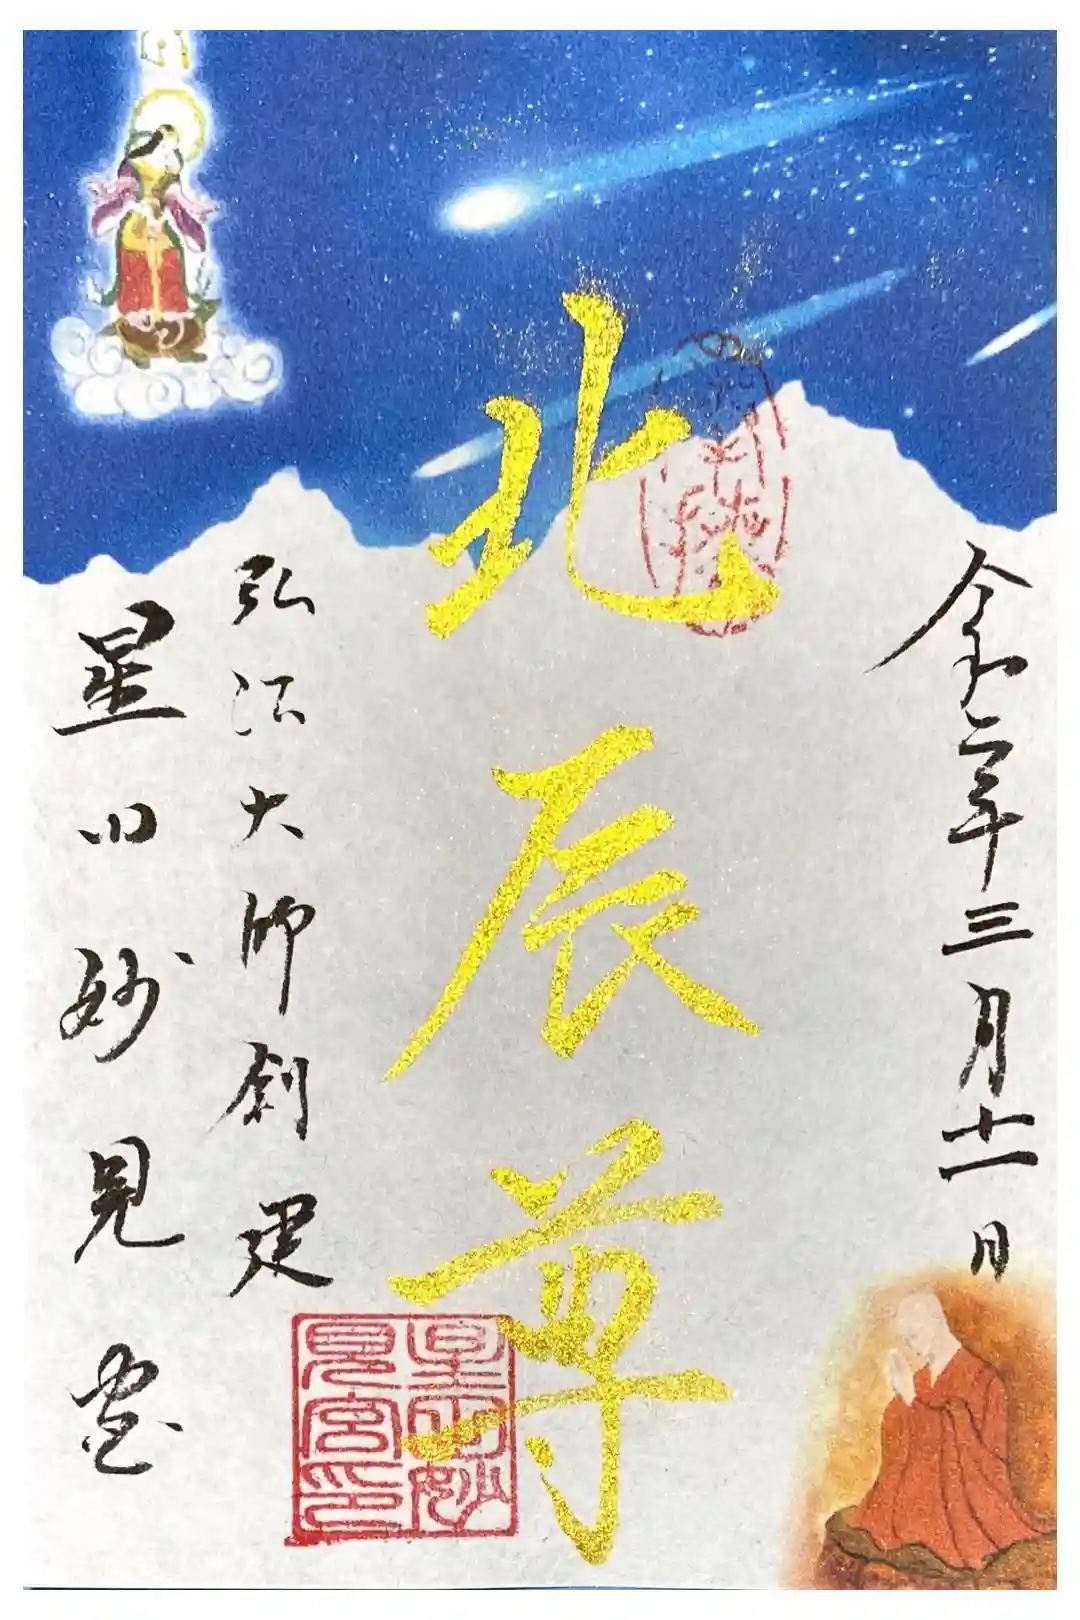 令和二年三月十一日
北辰尊
弘法大師創建
星田妙見宮
星田妙見宮印